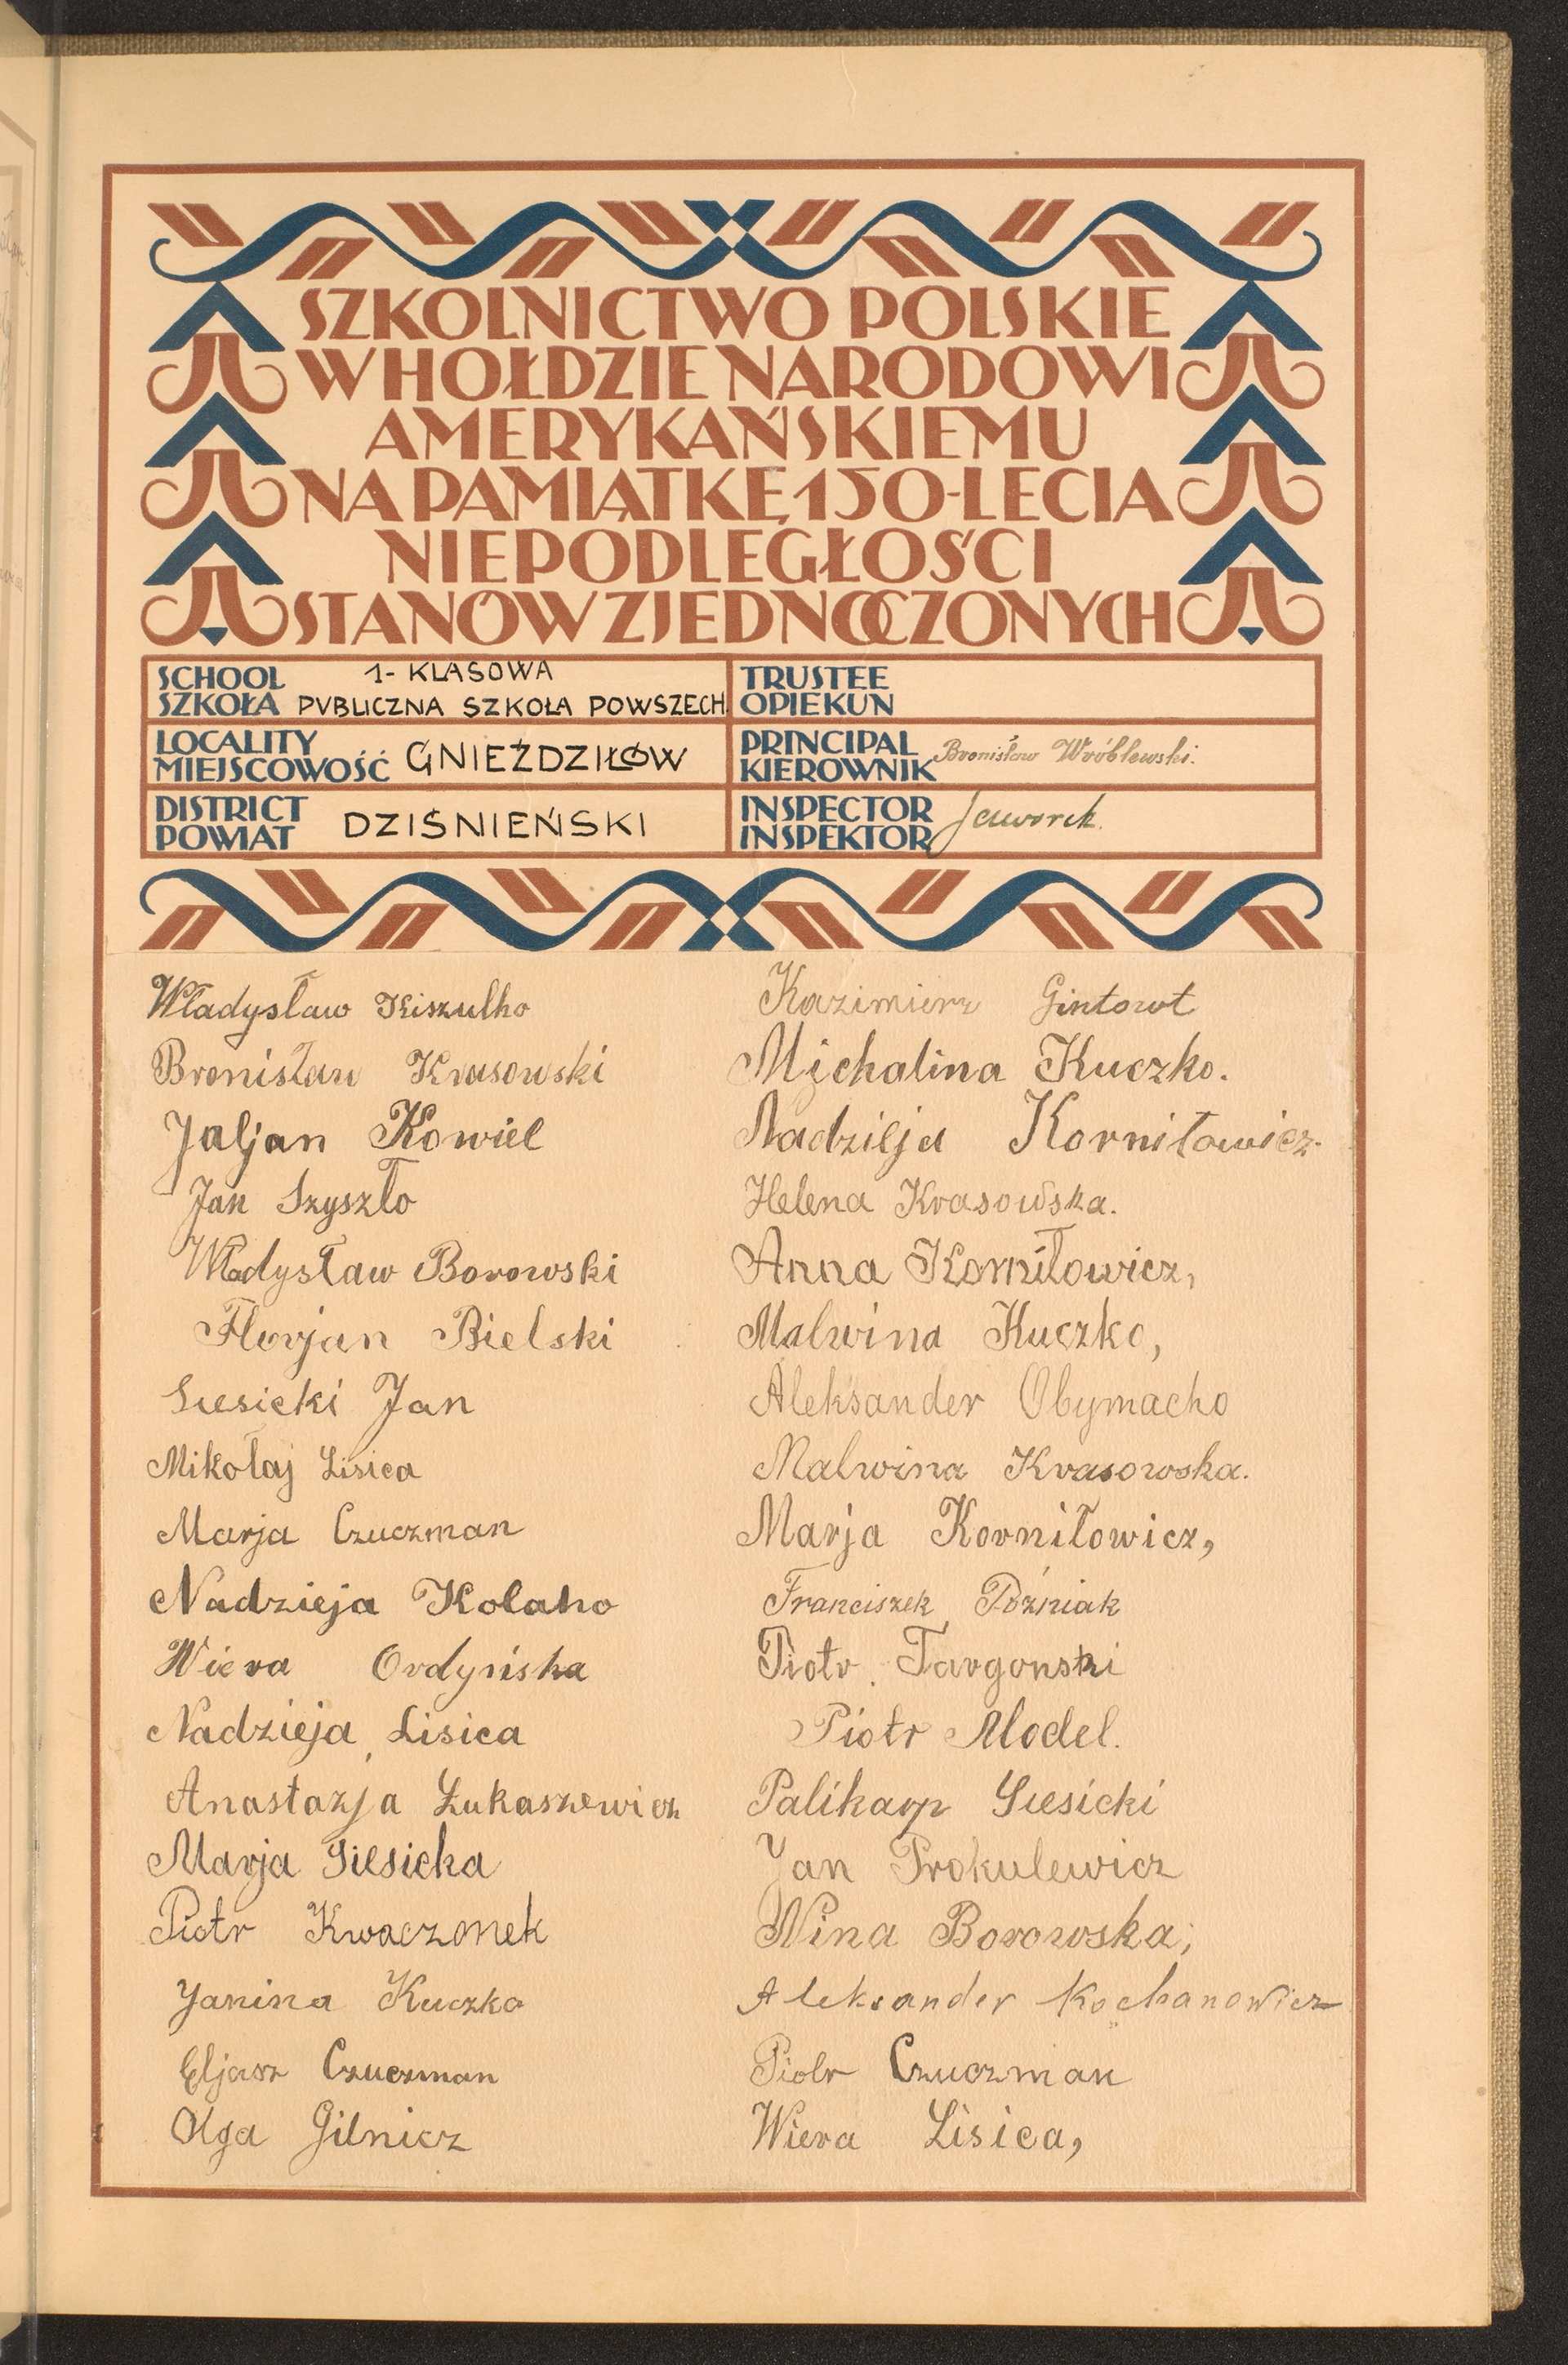 SZKOLNICTWO POLSKIE
W HOŁDZIE NARODOWI
AMERYKAŃSKIEMU
NA PAMIĄTKĘ 150-LECIA
NIEPODLEGŁOŚCI
STANÓW ZJEDNOCZONYCH
SCHOOL
SZKOŁA
1- KLASOWA
PVBLICZNA SZKOŁA POWSZECH.
TRUSTEE
OPIEKUN
LOCALITY
MIEJSCOWOŚĆ
GNIEŹDZIŁÓW
PRINCIPAL
KIEROWNIK
Bronisław Wróblewski.
DISTRICT
POWIAT
DZIŚNIEŃSKI
INSPECTOR
INSPEKTOR
Jaworek.
Władysław Kiszulko
Bronisław Krasowski
Juljan Kowiel
Jan Szyszło
Władysław Borowski
Florjan Bielski
Siesicki Jan
Mikołaj Lisica
Marja Czuczman
Nadzieja Kolaho
Wiera Ordyńska
Nadzieja Lisica
Anastazja Łukaszewicz
Marja Siesicka
Piotr Kwaczonek
Janina Kuczko
Eljasz Czuczman
Olga Gilnicz
Kazimierz Gintowt
Michalina Kuczko.
Nadzieja Korniłowicz.
Helena Krasowska.
Anna Korniłowicz,
Malwina Kuczko,
Aleksander Obymacho
Malwina Krasowska.
Marja Korniłowicz,
Franciszek Poźniak
Piotr Targonski
Piotr Model.
Palikarp Siesicki
Jan Prokulewicz
Nina Borowska,
Aleksander Kochanowicz
Piotr Czuczman
Wiera Lisica,